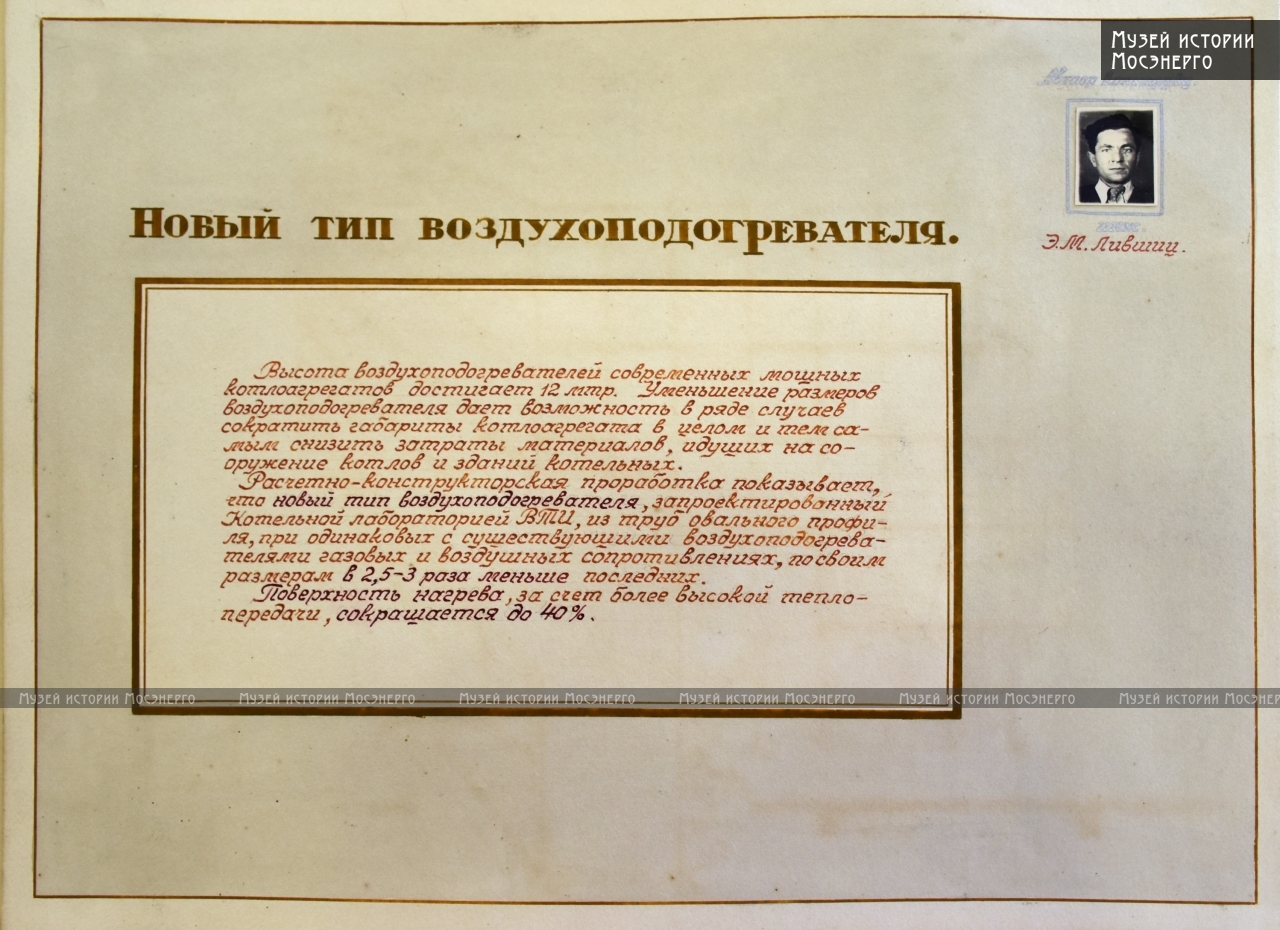 Музей истории
Мосэнерго
Э.М. Лившиц.
Новый тип воздухоподогревателя.
Высота воздухоподогревателей современных мощных
котлоагрегатов достигает 12 мтр. Уменьшение размеров
воздухоподогревателя дает возможность в ряде случаев
сократить габариты котлоагрегата в целом и тем са-
мым снизить затраты материалов, идущих на со-
оружение котлов и зданий котельных.
Расчетно-конструкторская проработка показывает,
что новый тип воздухоподогревателя, запроектированный
Котельной лабораторией ВТИ, из труб овального профи-
ля, при одинаковых с существующими воздухоподогрева-
телями газовых и воздушных сопротивлениях, по своим
размерам в 2,5-3 раза меньше последних.
Поверхность нагрева, за счет более высокой тепло-
передачи, сокращается до 40%.
Музей истории Мосэнерго Музей истории Мосэнерго Музей истории Мосэнерго Музей истории Мосэнерго Музей истории Мосэнерго Музей истории Мосэнер